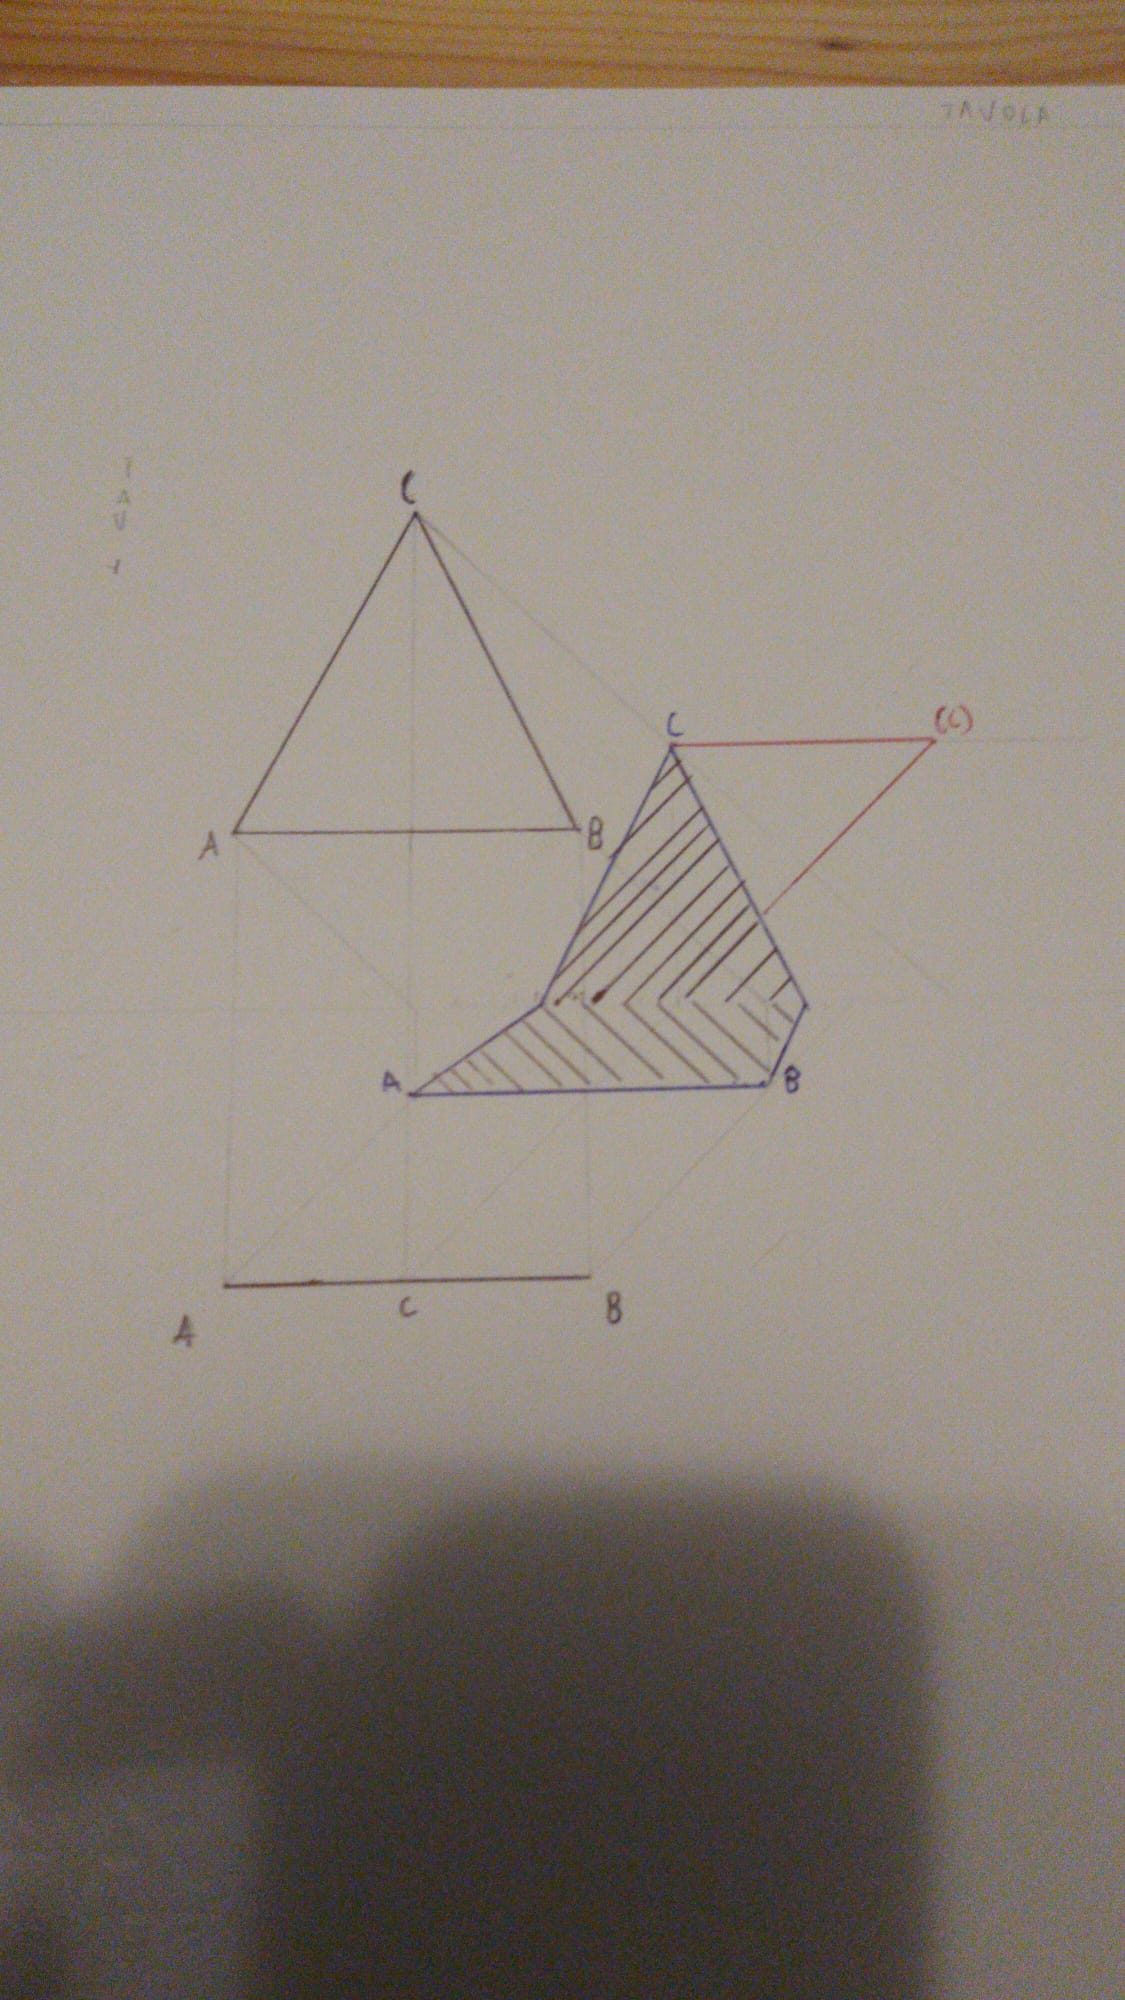 TAVOLA
T
A
V
C
A
B
C
(C)
A
B
A
C
B